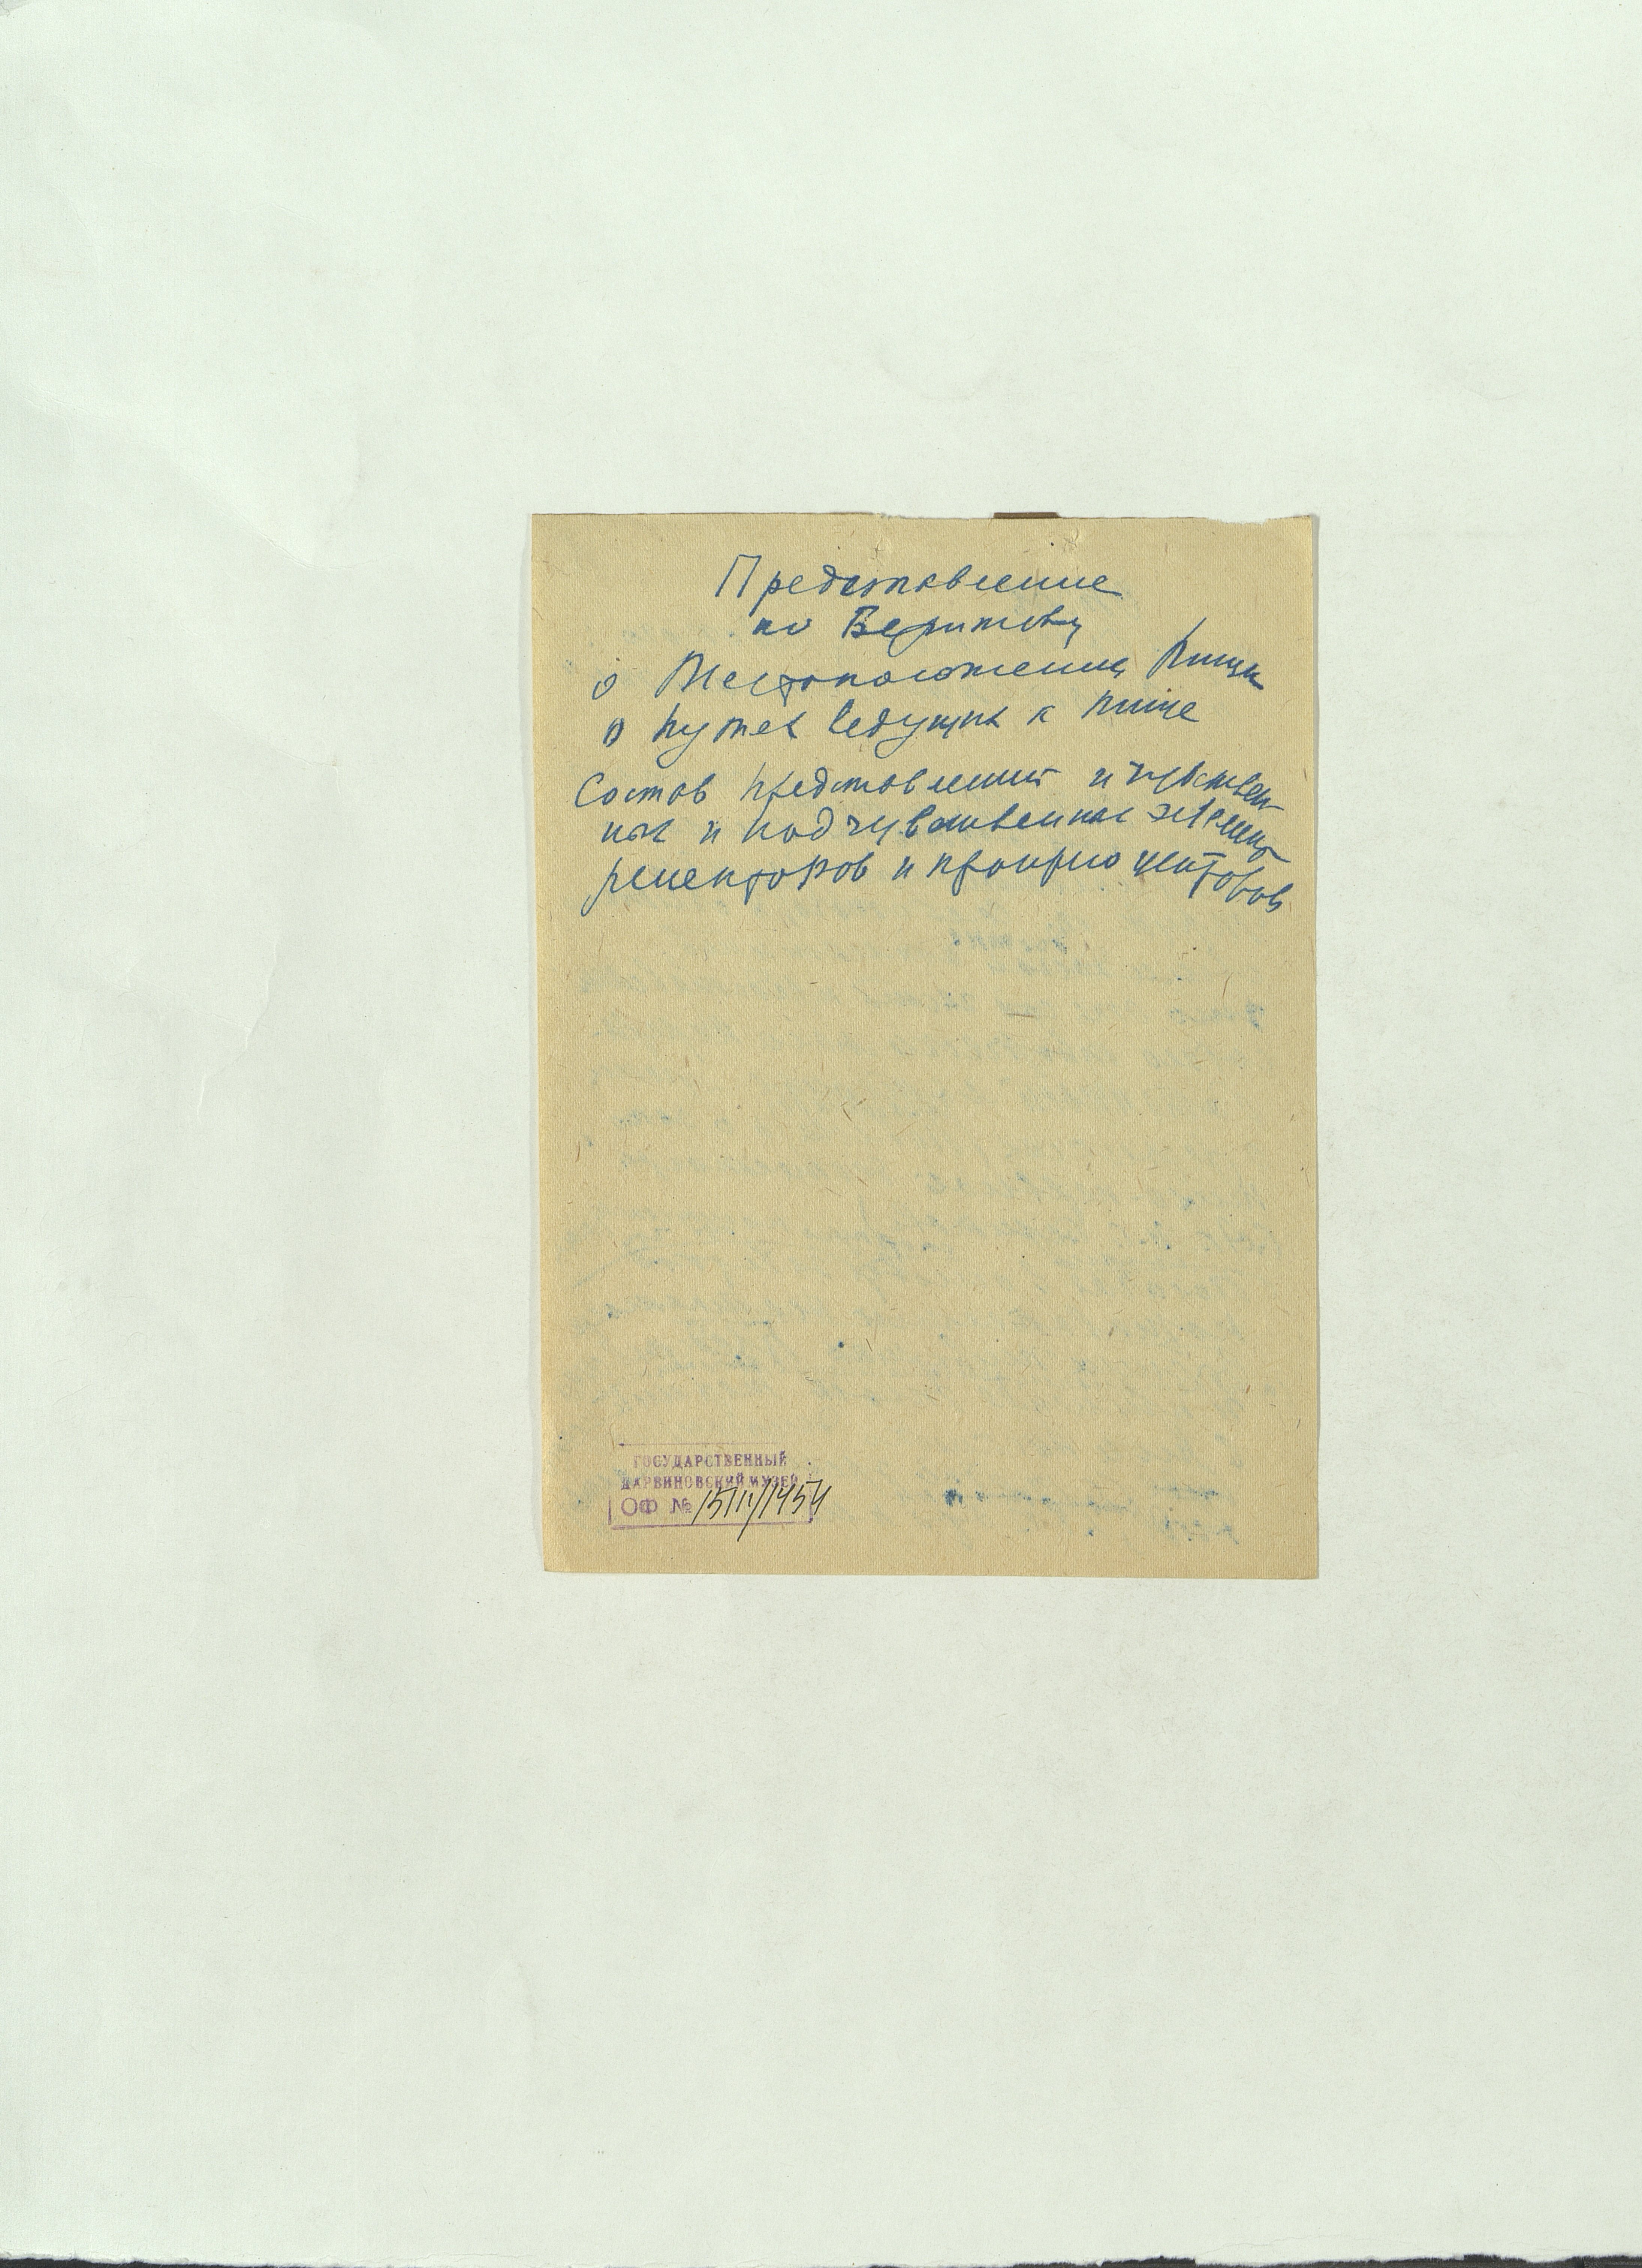 Представление
по Бериташву
о Местоположении пищи
о путях ведущих к пище
Состав представлений и чувствен-
ных и подчувственных элемент
рецепторов и проприоцепторов
ГОСУДАРСТВЕННЫЙ
ДАРВИНОВСКИЙ МУЗЕЙ
ОФ №